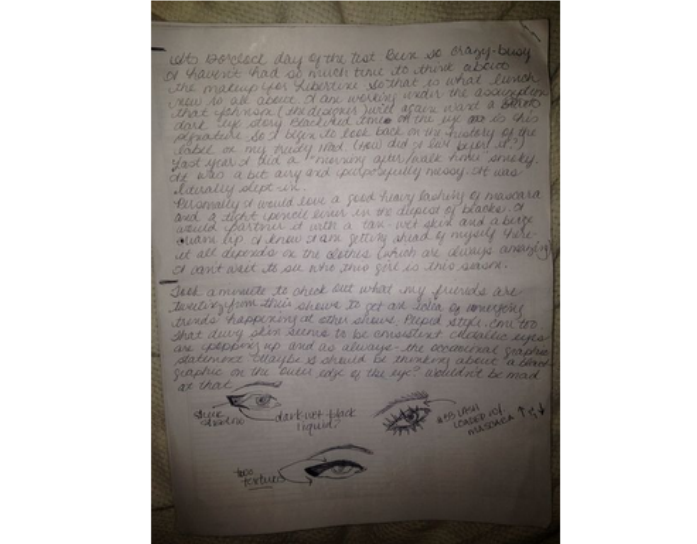 Its 2 o'clock day of the test Been so crazy-busy
I haven't had so much time to think about
the makeup for Libertine so that is what lunch
now is all about. I am working under the assumption
that Johnson (the designer) will again want a
dark eye story Blackened on the eye is his
signature so I begin to look back on the history of the
label on my trusty iPad. (How did I live before it?)
Last year I did a "morning after/walk home" smoky.
It was a bit airy and purposefully messy. It was
literally slept in.
Personally I would love a good heavy lashing of mascara
and a tight pencil liner in the deepest of blacks. I
would partner it with a tan-wet skin and a beige
warm lip. I know I am getting ahead of myself here-
it all depends on the clothes (which are always amazing)
I can't wait to see who this girl is this season.
Took a minute to check out what my friends are
tweeting from their shows to get an idea of emerging
trends happening at other shows. Peeped style.com too
that dewy skin seems to be consistent metallic eyes
are popping up and as always- the occasional graphic
statement. Maybe I should be thinking about a black
graphic on the outer edge of the eye? Wouldn't be mad
at that
dark wet black
liquid?
lash
LOADED w/
MASCARA ↑ & ↓
textures